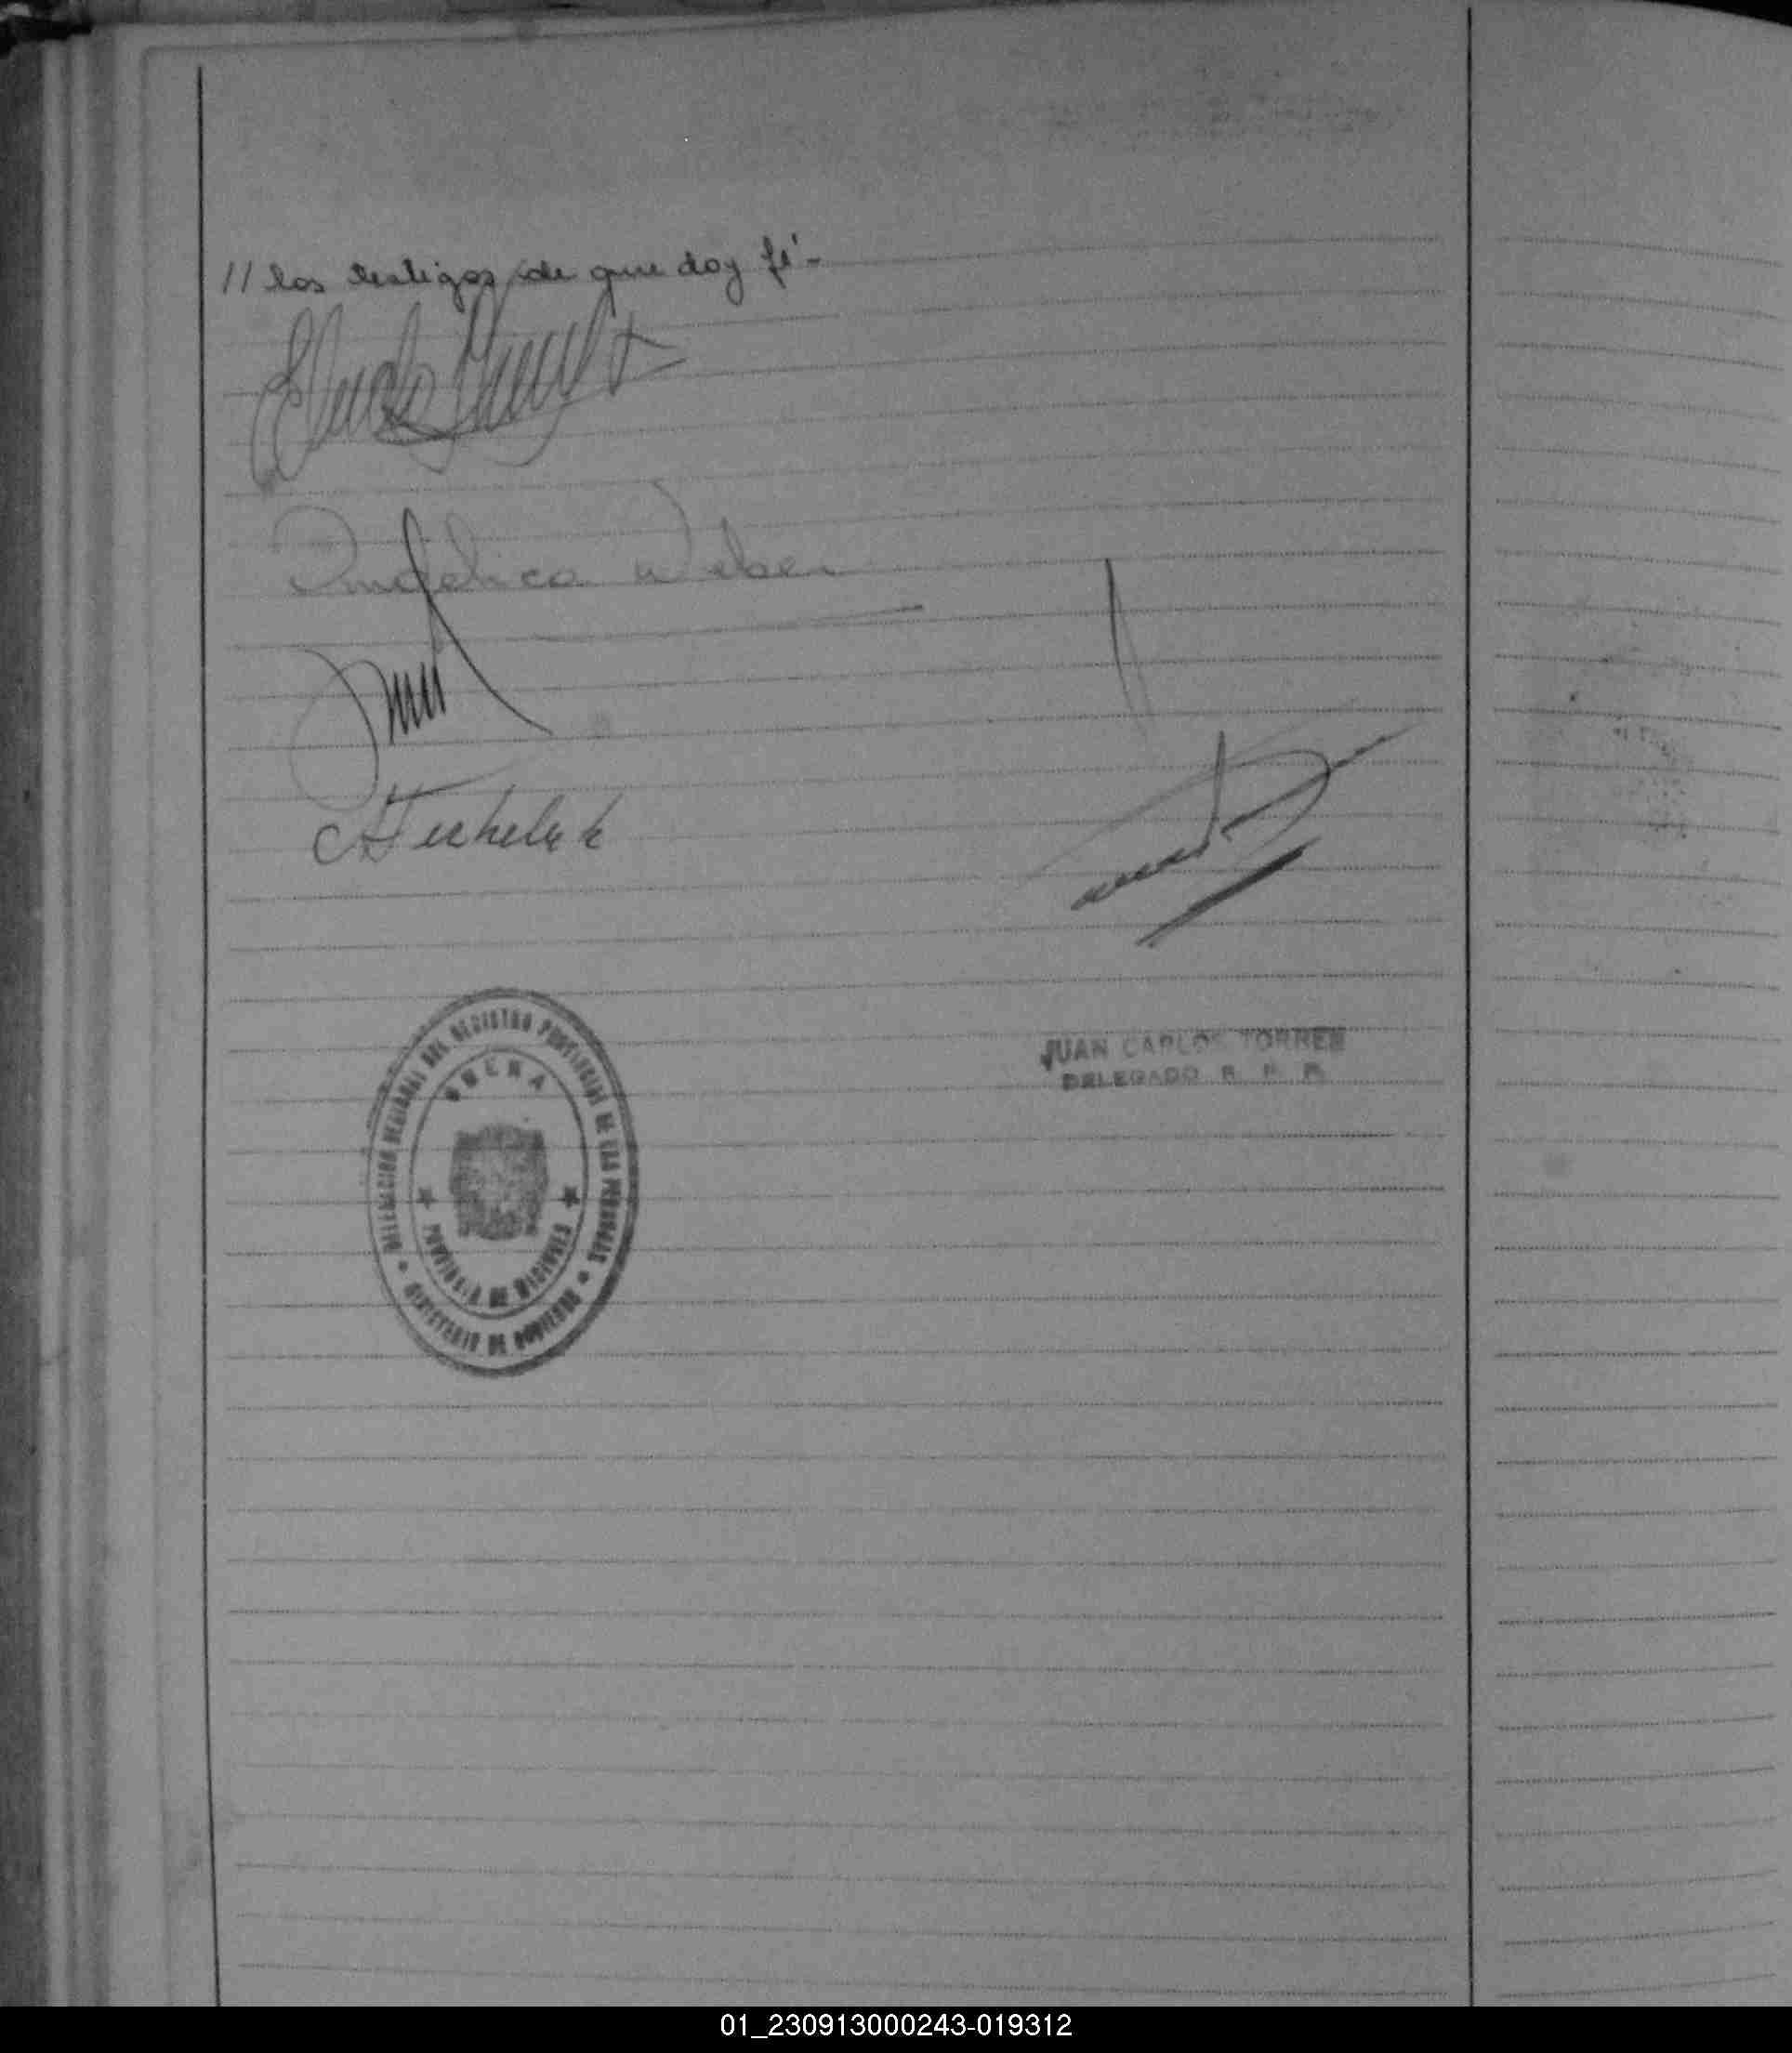 // los testigos de que doy fé.-
Angelica Weber
JUAN CARLOS TORRES
DELEGADO R. P. P.
DELEGACION REGIONAL DEL REGISTRO PROVINCIAL DE LAS PERSONAS
OBERA
PROVINCIA DE MISIONES
MINISTERIO DE GOBIERNO
01_230913000243-019312